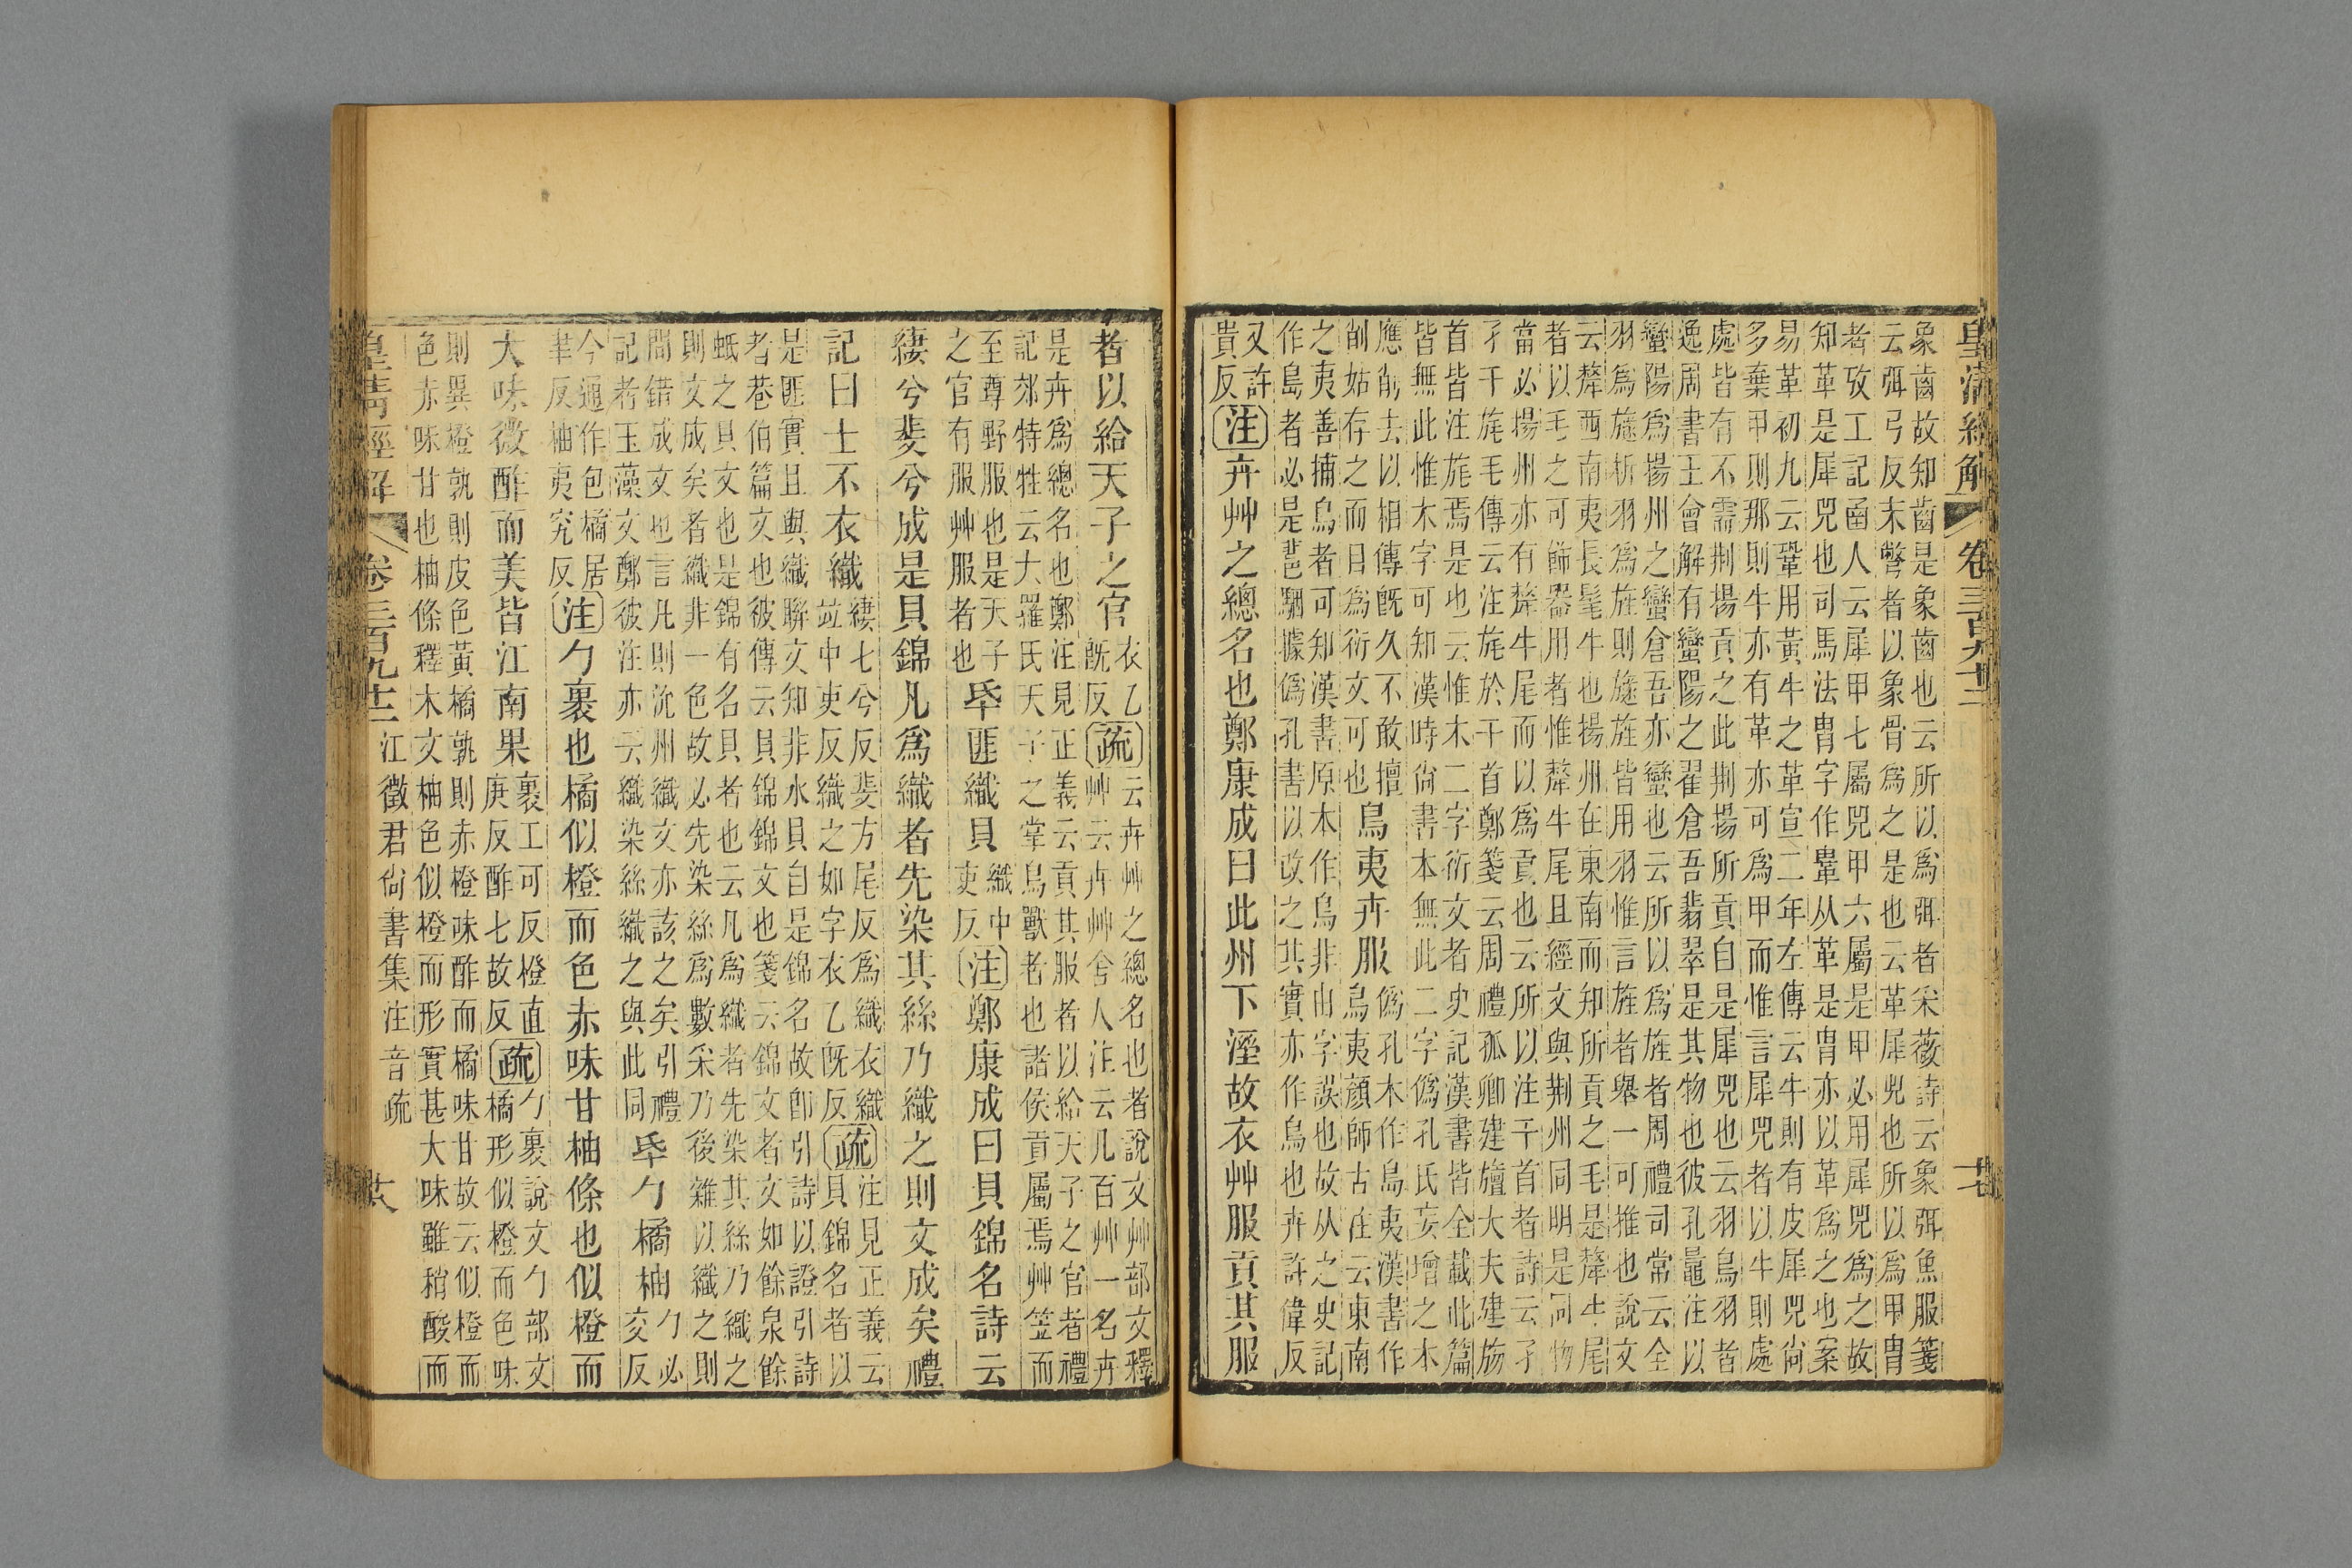 皇清經解 卷三百九十二 十七
象齒故知齒是象齒也云所以為弭者采薇詩云象弭魚服箋
云弭弓反末彆者以象骨為之是也云革犀兕也所以為甲冑
者攷工記函人云犀甲七屬兕甲六屬是甲必用犀兕為之故
知革是犀兕也司馬法冑字作䩜从革是冑亦以革為之也案
易革初九云鞏用黃牛之革宣二年左傳云牛則有皮犀兕尚
多棄甲則那則牛亦有革亦可為甲而惟言犀兕者以牛則處
處皆有不需荊揚貢之此荊揚所貢自是犀兕也云羽鳥羽者
逸周書王會解有蠻陽之翟倉吾翡翠是其物也彼孔鼂注以
蠻陽為揚州之蠻倉吾亦蠻也云所以為旌者周禮司常云全
羽為旞析羽為旌則旞旌皆用羽惟言旌者舉一可推也說文
云犛西南夷長髦牛也揚州在東南而知所貢之毛是犛牛尾
者以毛之可飾器用者惟犛牛尾且經文與荊州同明是同物
當必揚州亦有犛牛尾而以為貢也云所以注干首者詩云孑
孑干旄毛傳云注旄於干首鄭箋云周禮孤卿建旜大夫建
首皆注旄焉是也云惟木二字衍文者史記漢書皆全載此篇
皆無此惟木字可知漢時尚書本無此二字偽孔氏妄增之本
應削去以相傳旣久不敢擅
削姑存之而目為衍文可也
鳥夷卉服
偽孔本作島夷漢書作
鳥夷顏師古注云東南
之夷善捕鳥者可知漢書原本作鳥非由字誤也故从之史記
作島者必是裴駰據偽孔書以改之其實亦作鳥也卉許偉反
又許貴反 注 卉艸之總名也鄭康成曰此州下溼故衣艸服貢其服
者以給天子之官 衣乙旣反 疏
云卉艸之總名也者說文艸部文釋
艸云卉艸舍人注云凡百艸一名卉
是卉為總名也鄭注見正義云貢其服者以給天子之官者禮
記郊特牲云大羅氏天子之掌鳥獸者也諸侯貢屬焉艸笠而
至尊野服也是天子
之官有服艸服者也
氒匪織貝 織中吏反 注 鄭康成曰貝錦名詩云
緀兮斐兮成是貝錦凡為織者先染其絲乃織之則文成矣禮
記曰士不衣織
緀七兮反斐方尾反為織衣織
竝中吏反織之如字衣乙旣反
疏
注見正義云
貝錦名者以
是匪實且與織聯文知非水貝自是錦名故卽引詩以證引詩
者巷伯篇文也彼傳云貝錦錦文也箋云錦文者文如餘泉餘
蚳之貝文也是錦有名貝者也云凡為織者先染其絲乃織之
則文成矣者織非一色故必先染絲為數采乃後雜以織之則
間錯成文也言凡則沇州織文亦該之矣引禮
記者玉藻文鄭彼注亦云織染絲織之與此同
氒勹橘柚 勹必交反
今通作包橘居
聿反柚夷究反
注 勹裹也橘似橙而色赤味甘柚條也似橙而
大味微酢而美皆江南果
裹工可反橙直
庚反酢七故反
疏
勹裹說文勹部文
橘形似橙而色味
則異橙孰則皮色黃橘孰則赤橙味酢而橘味甘故云似橙而
色赤味甘也柚條釋木文柚色似橙而形實甚大味雖稍酸而
皇清經解 卷三百九十二 江徵君尚書集注音疏 十八